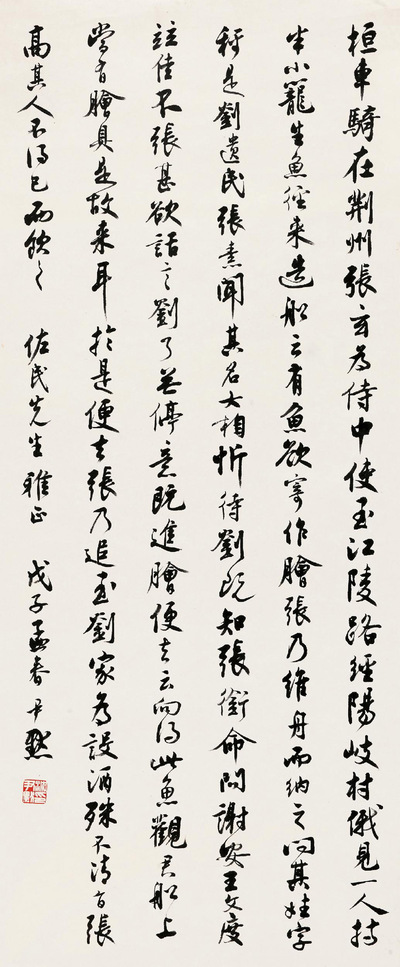 桓車騎在荊州張玄為侍中使至江陵路經陽岐村俄見一人持
半小籠生魚徑来造船云有魚欲寄作膾張乃維舟而納之問其姓字
稱是劉遺民張素聞其名大相忻待劉既知張銜命問謝安王文度
並佳不張甚欲話言劉了無停意既進膾便去云向得此魚觀君船上
當有膾具是故来耳於是便去張乃追至劉家為設酒殊不清旨張
高其人不得已而飲之 佐民先生雅正 戊子孟春 尹默